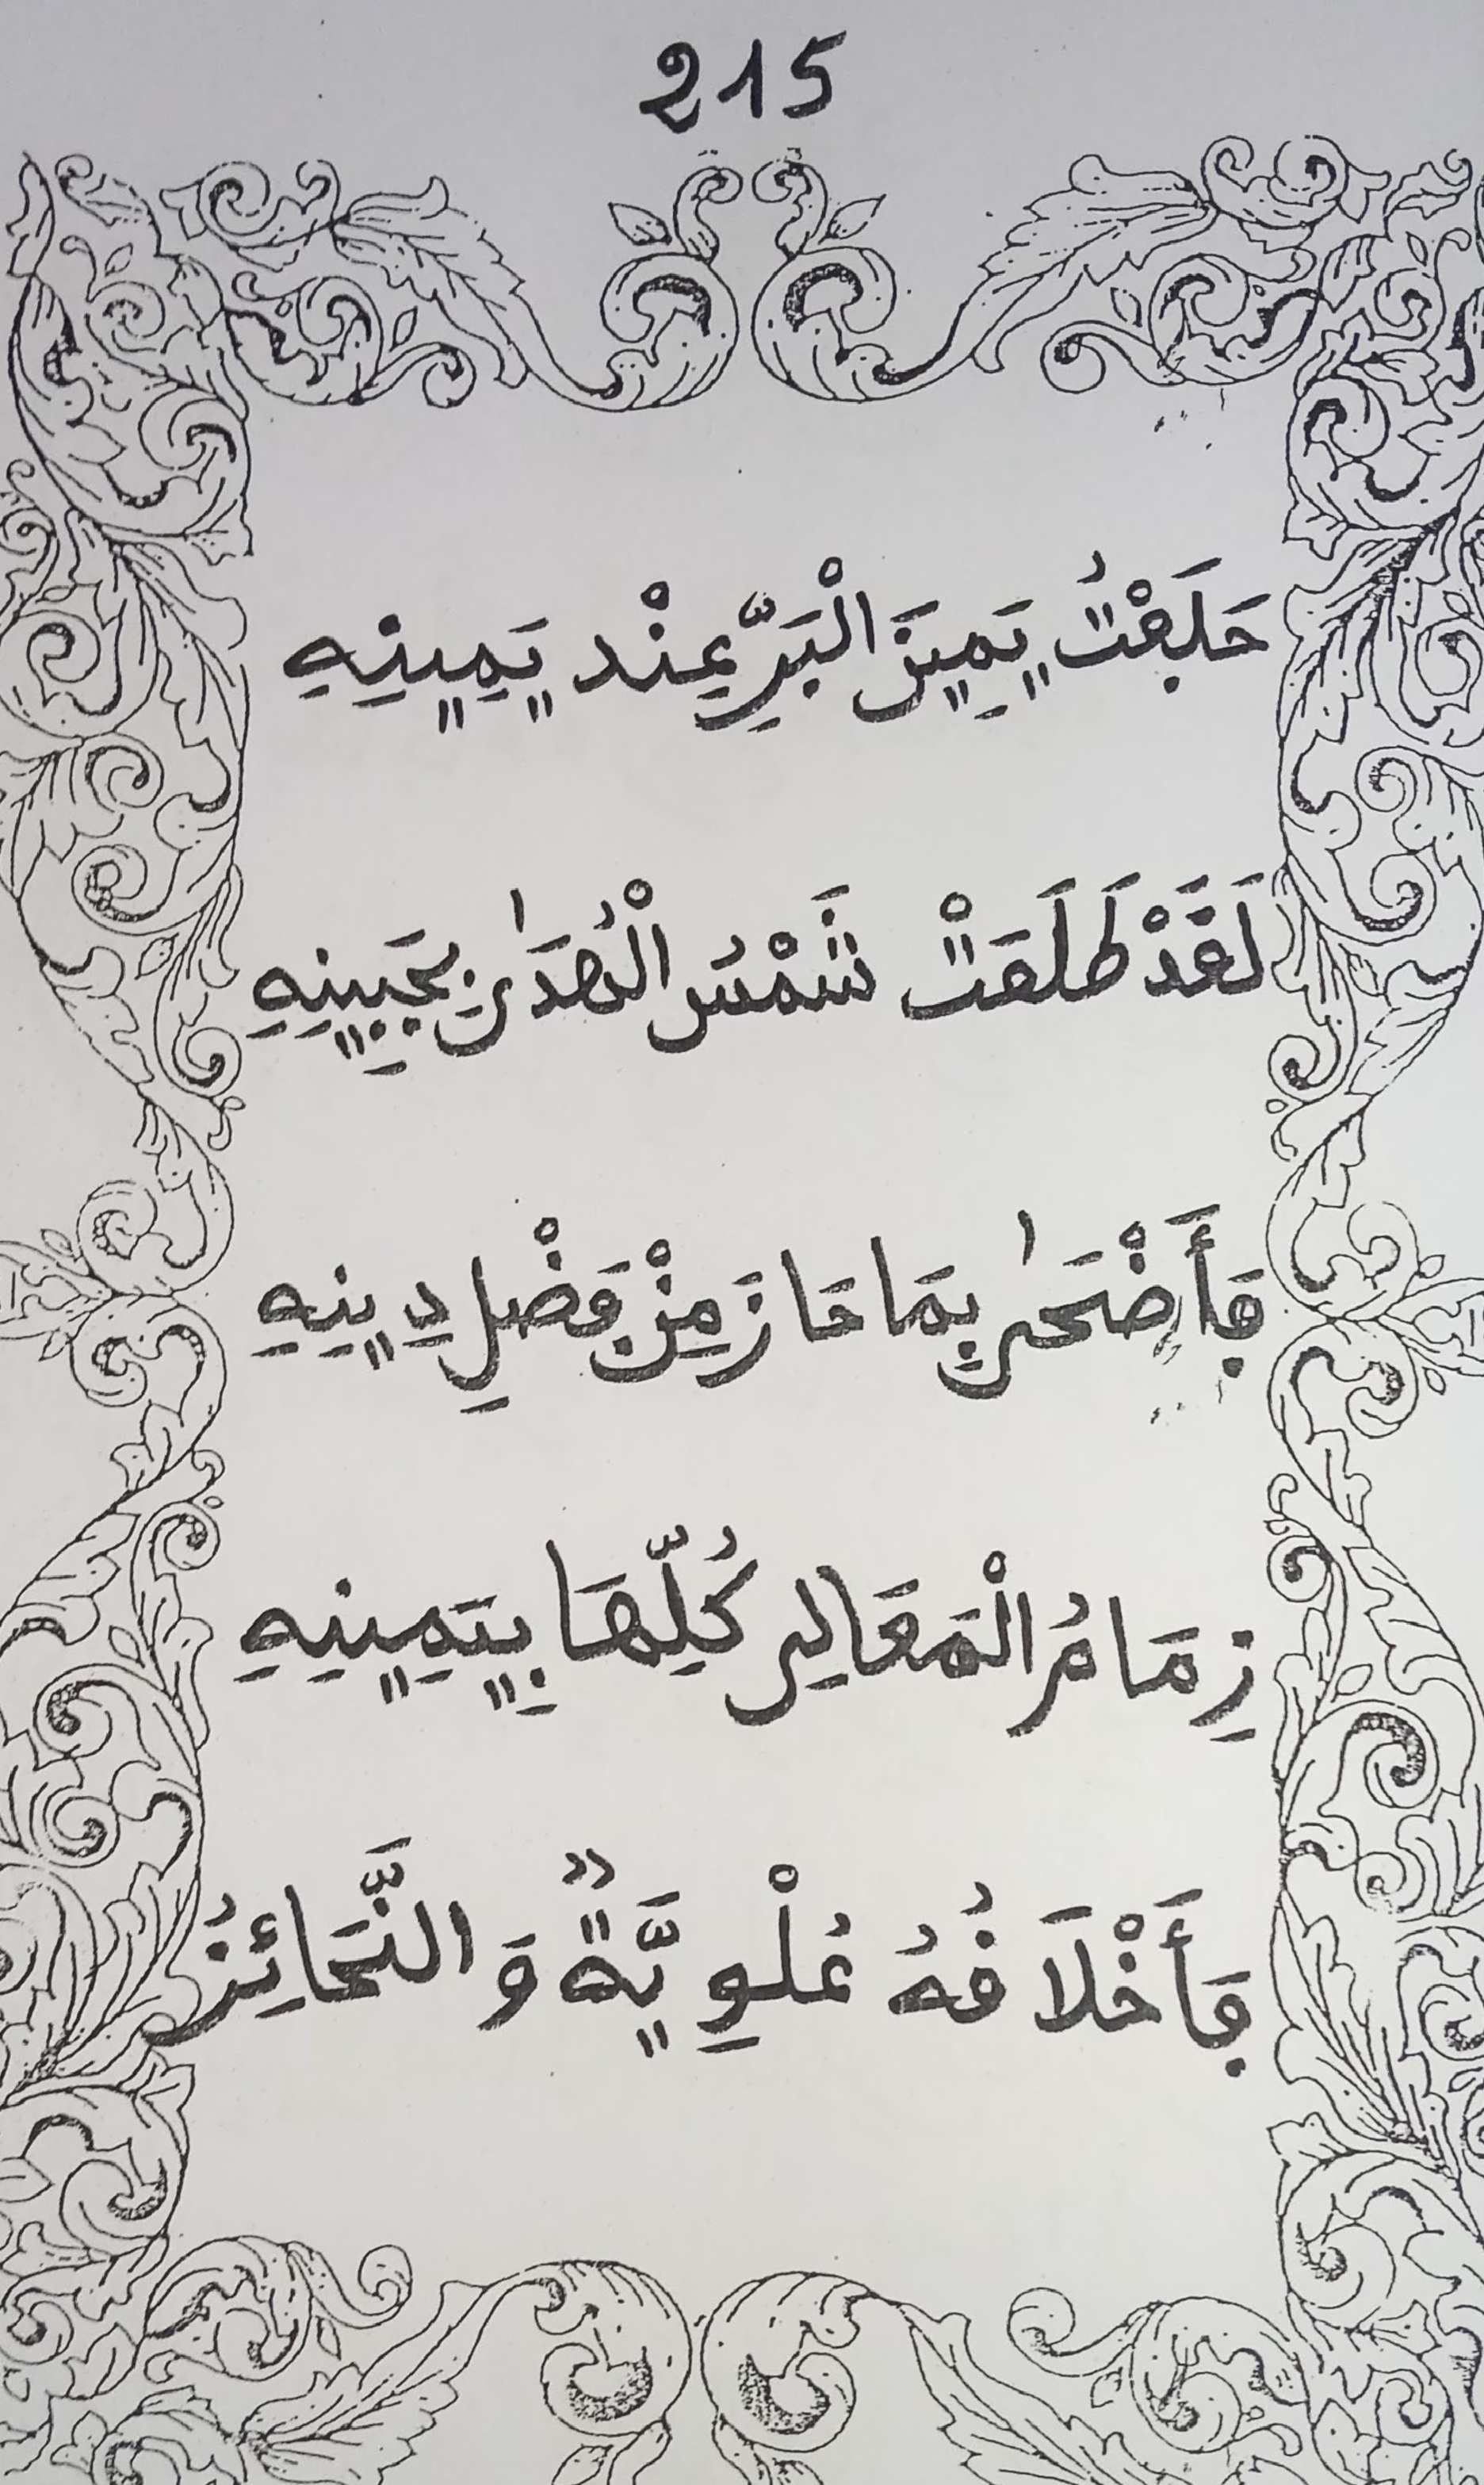 215
حَلَفْتُ يَمِينَ الْبَرِّ عِنْد يَمِينِهِ
لَقَدْ طَلَعَتْ شَمْسُ الْهُدَىٰ بِجَبِينِهِ
فَأَضْحَىٰ بِمَا حَازَ مِنْ فَضْلِ دِينِهِ
زِمَامُ الْمَعَالِي كُلِّهَا بِيَمِينِهِ
فَأَخْلَاقُهُ عُلْوِيَّةٌ وَالنَّحَائِزُ